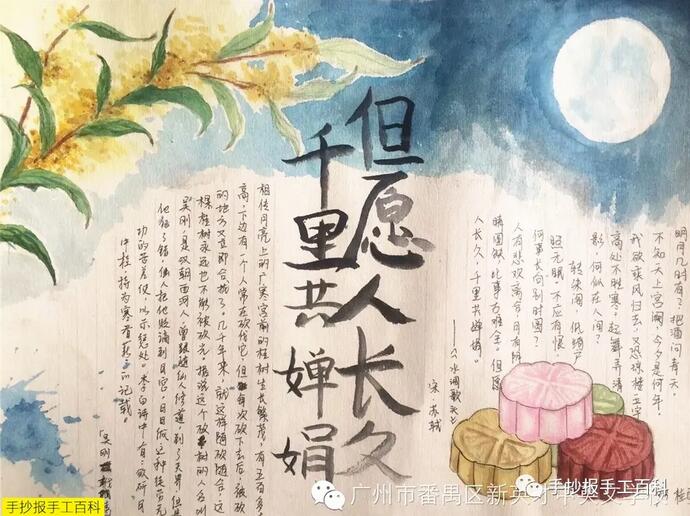 但愿人长久
千里共婵娟
明月几时有？把酒问青天。
不知天上宫阙，今夕是何年。
我欲乘风归去，又恐琼楼玉宇
高处不胜寒。起舞弄清
影，何似在人间？
转朱阁，低绮户
照无眠。不应有恨，
何事长向别时圆？
人有悲欢离合，月有阴
晴圆缺，此事古难全。但愿
人长久，千里共婵娟。
——《水调歌头》
宋 苏轼
相传月亮上的广寒宫前的桂树生长繁茂，有五百多
高，下边有一个人常在砍伐它，但每次砍下去后，被砍
的地方又立即合拢了。几千年来，就这样随砍随合，这
棵桂树永远也不能被砍光。据说这个砍树的人名叫
吴刚，是汉朝西河人，曾跟随仙人修道，到了天界，但是
他犯了错，仙人把他贬谪到月宫，日日做这种徒劳无
功的苦差使，以示惩处。李白诗中有：欲斫月
中桂，持为寒者薪的记载。
手抄报手工百科
手抄报手工百科